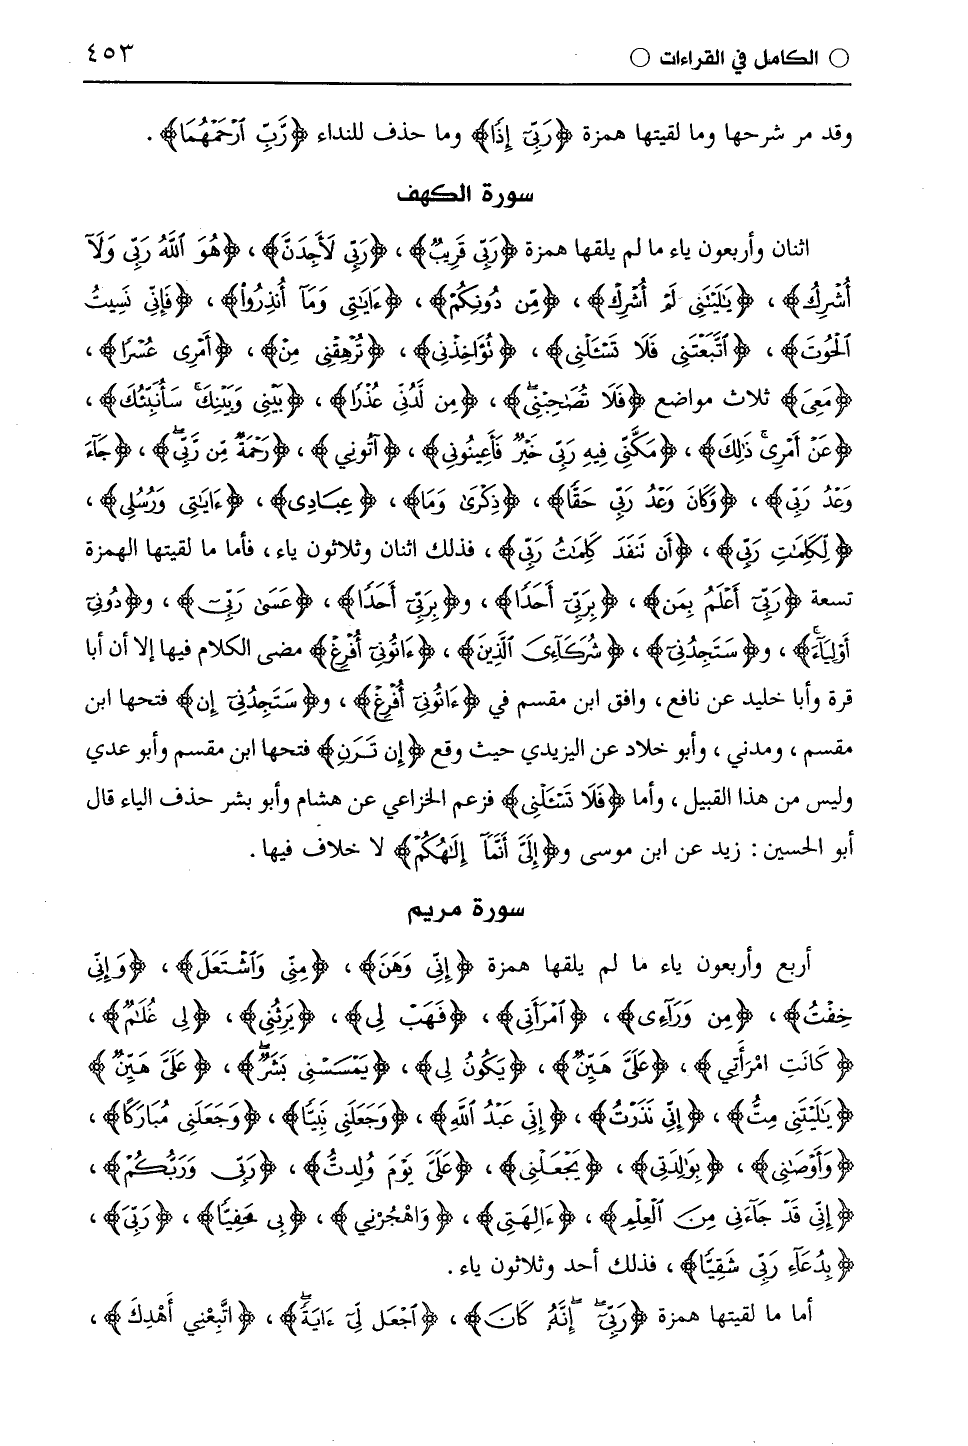 ○ الكامل في القراءات ○ ٤٥٣
وقد مر شرحها وما لقيتها همزة ﴿رَبِّيٓ إِذًا﴾ وما حذف للنداء ﴿رَّبِّ ٱرۡحَمۡهُمَا﴾ .
سورة الكهف
اثنان وأربعون ياء ما لم يلقها همزة ﴿رَبِّي قَرِيبٌ﴾ ، ﴿رَبِّي لَأَجِدَنَّ﴾ ، ﴿هُوَ ٱللَّهُ رَبِّي وَلَآ
أُشۡرِكُ﴾ ، ﴿يَٰلَيۡتَنِي لَمۡ أُشۡرِكۡ﴾ ، ﴿مِّن دُونِكُمۡ﴾ ، ﴿ءَايَٰتِي وَمَآ أُنذِرُواْ﴾ ، ﴿فَإِنِّي نَسِيتُ
ٱلۡحُوتَ﴾ ، ﴿ٱتَّبَعۡتَنِي فَلَا تَسۡـَٔلۡنِي﴾ ، ﴿تُؤَاخِذۡنِي﴾ ، ﴿تُرۡهِقۡنِي مِنۡ﴾ ، ﴿أَمۡرِي عُسۡرًا﴾ ،
﴿مَعِيَ﴾ ثلاث مواضع ﴿فَلَا تُصَٰحِبۡنِيۖ﴾ ، ﴿مِن لَّدُنِّي عُذۡرًا﴾ ، ﴿بَيۡنِي وَبَيۡنِكَۚ سَأُنَبِّئُكَ﴾ ،
﴿عَنۡ أَمۡرِيۚ ذَٰلِكَ﴾ ، ﴿مَكَّنِّي فِيهِ رَبِّي خَيۡرٌ فَأَعِينُونِي﴾ ، ﴿آتُونِي﴾ ، ﴿رَحۡمَةٌ مِّن رَّبِّيۖ﴾ ، ﴿جَآءَ
وَعۡدُ رَبِّي﴾ ، ﴿وَكَانَ وَعۡدُ رَبِّي حَقًّا﴾ ، ﴿ذِكۡرَىٰ وَمَا﴾ ، ﴿عِبَادِي﴾ ، ﴿ءَايَٰتِي وَرُسُلِي﴾ ،
﴿لِّكَلِمَٰتِ رَبِّي﴾ ، ﴿أَن تَنفَدَ كَلِمَٰتُ رَبِّي﴾ ، فذلك اثنان وثلاثون ياء ، فأما ما لقيتها الهمزة
تسعة ﴿رَبِّيٓ أَعۡلَمُ بِمَن﴾ ، ﴿بِرَبِّيٓ أَحَدًا﴾ ، و﴿بِرَبِّيٓ أَحَدًا﴾ ، ﴿عَسَىٰ رَبِّيٓ﴾ ، و﴿دُونِيٓ
أَوۡلِيَآءَۚ﴾ ، و﴿سَتَجِدُنِيٓ﴾ ، ﴿شُرَكَآءِيَ ٱلَّذِينَ﴾ ، ﴿ءَاتُونِيٓ أُفۡرِغۡ﴾ مضى الكلام فيها إلا أن أبا
قرة وأبا خليد عن نافع ، وافق ابن مقسم في ﴿ءَاتُونِيٓ أُفۡرِغۡ﴾ ، و﴿سَتَجِدُنِيٓ إِن﴾ فتحها ابن
مقسم ، ومدني ، وأبو خلاد عن اليزيدي حيث وقع ﴿إِن تَرَنِ﴾ فتحها ابن مقسم وأبو عدي
وليس من هذا القبيل ، وأما ﴿فَلَا تَسۡـَٔلۡنِي﴾ فزعم الخزاعي عن هشام وأبو بشر حذف الياء قال
أبو الحسين : زيد عن ابن موسى و﴿إِلَيَّ أَنَّمَآ إِلَٰهُكُمۡ﴾ لا خلاف فيها .
سورة مريم
أربع وأربعون ياء ما لم يلقها همزة ﴿إِنِّي وَهَنَ﴾ ، ﴿مِنِّي وَٱشۡتَعَلَ﴾ ، ﴿وَإِنِّي
خِفۡتُ﴾ ، ﴿مِن وَرَآءِي﴾ ، ﴿ٱمۡرَأَتِي﴾ ، ﴿فَهَبۡ لِي﴾ ، ﴿يَرِثُنِي﴾ ، ﴿لِي غُلَٰمٌ﴾ ،
﴿كَانَتِ امْرَأَتِي﴾ ، ﴿عَلَيَّ هَيِّنٌ﴾ ، ﴿يَكُونُ لِي﴾ ، ﴿يَمۡسَسۡنِي بَشَرٌۖ﴾ ، ﴿عَلَيَّ هَيِّنٌ﴾
﴿يَٰلَيۡتَنِي مِتُّ﴾ ، ﴿إِنِّي نَذَرۡتُ﴾ ، ﴿إِنِّي عَبۡدُ ٱللَّهِ﴾ ، ﴿وَجَعَلَنِي نَبِيًّا﴾ ، ﴿وَجَعَلَنِي مُبَارَكًا﴾ ،
﴿وَأَوۡصَٰنِي﴾ ، ﴿بِوَٰلِدَتِي﴾ ، ﴿يَجۡعَلۡنِي﴾ ، ﴿عَلَيَّ يَوۡمَ وُلِدتُّ﴾ ، ﴿رَبِّي وَرَبُّكُمۡ﴾ ،
﴿إِنِّي قَدۡ جَآءَنِي مِنَ ٱلۡعِلۡمِ﴾ ، ﴿ءَالِهَتِي﴾ ، ﴿وَاهْجُرْنِي﴾ ، ﴿بِي حَفِيًّا﴾ ، ﴿رَبِّيَ﴾ ،
﴿بِدُعَآءِ رَبِّي شَقِيًّا﴾ ، فذلك أحد وثلاثون ياء .
أما ما لقيتها همزة ﴿رَبِّيٓۖ إِنَّهُۥ كَانَ﴾ ، ﴿ٱجۡعَل لِّيٓ ءَايَةًۖ﴾ ، ﴿اتَّبِعْنِي أَهْدِكَ﴾ ،